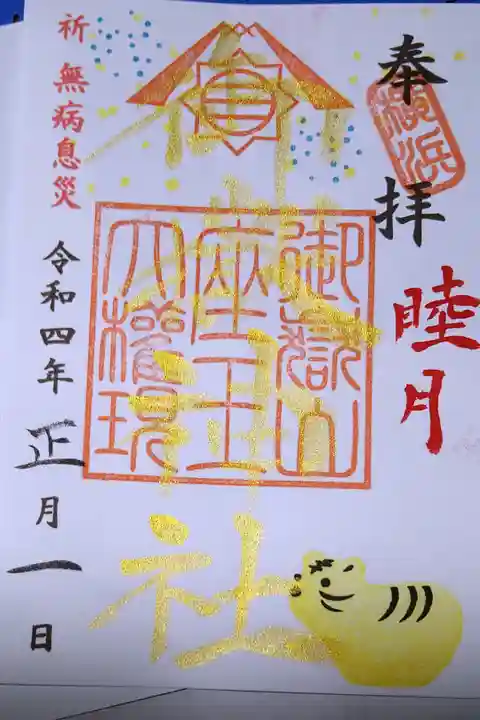 奉拝
横浜
睦月
御嶽山
座王
大權現
社
祈 無病息災
令和四年正月一日